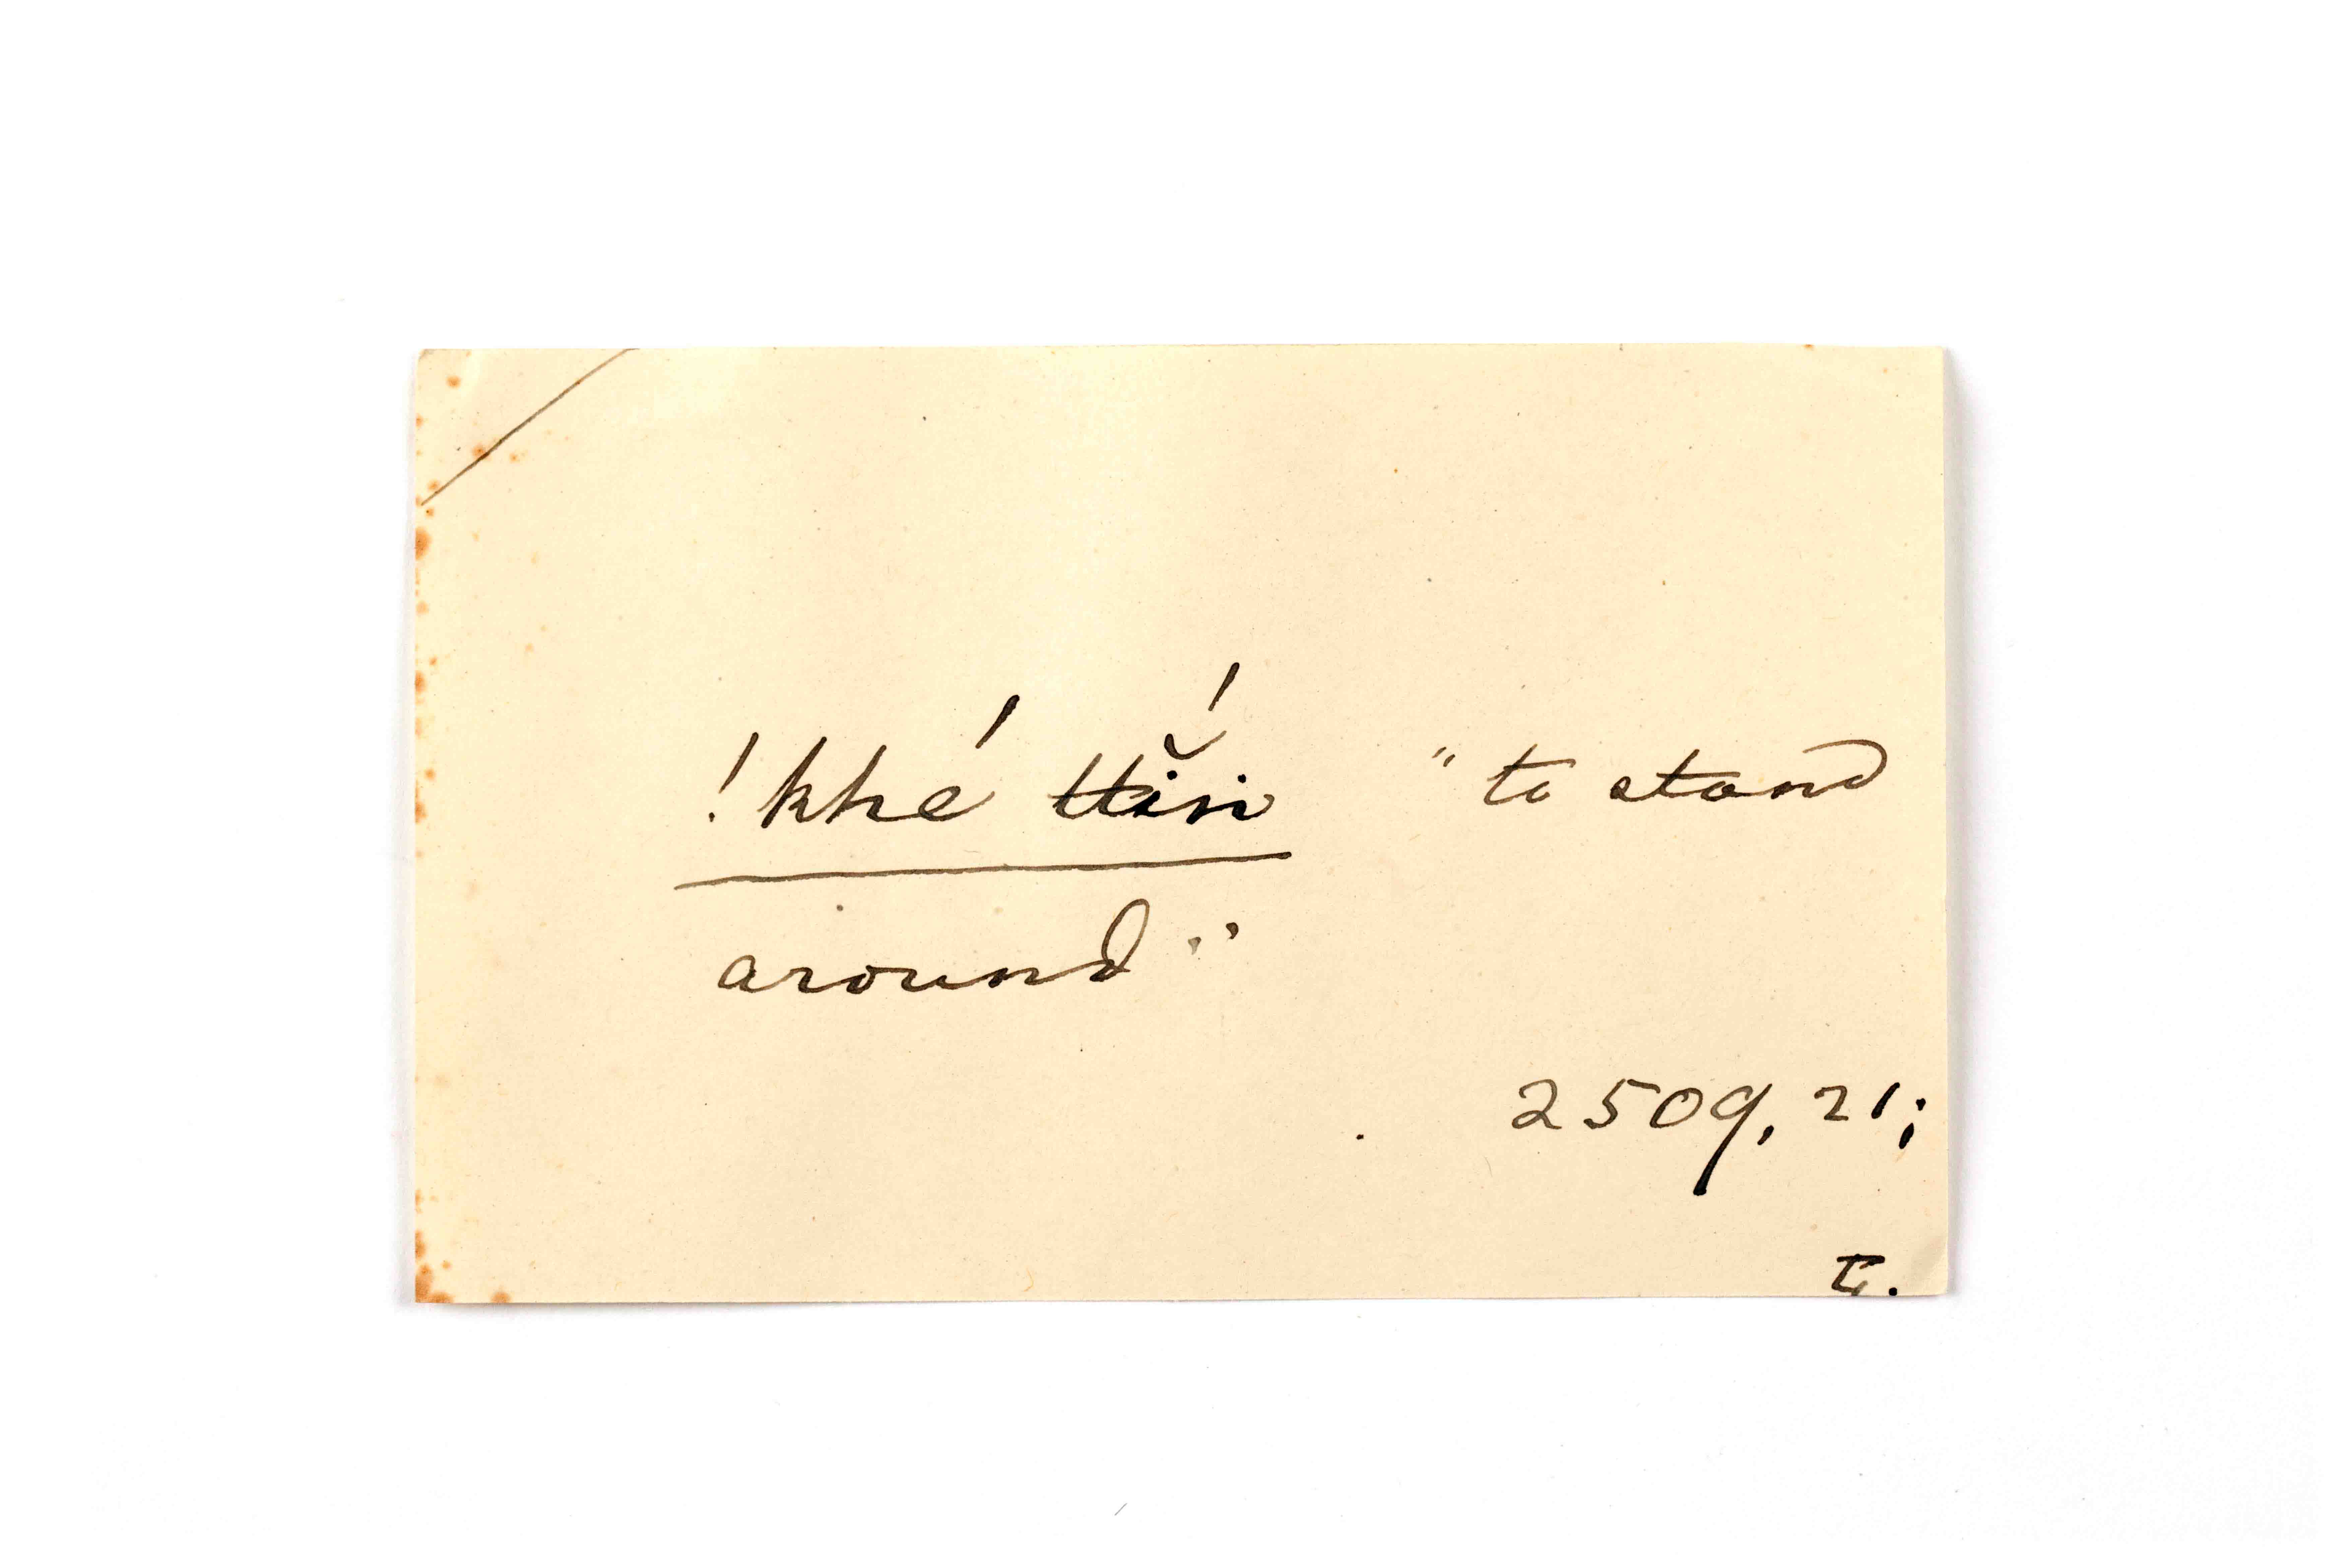 !khé ttĭ́n "to stand
around"
2509, 21;